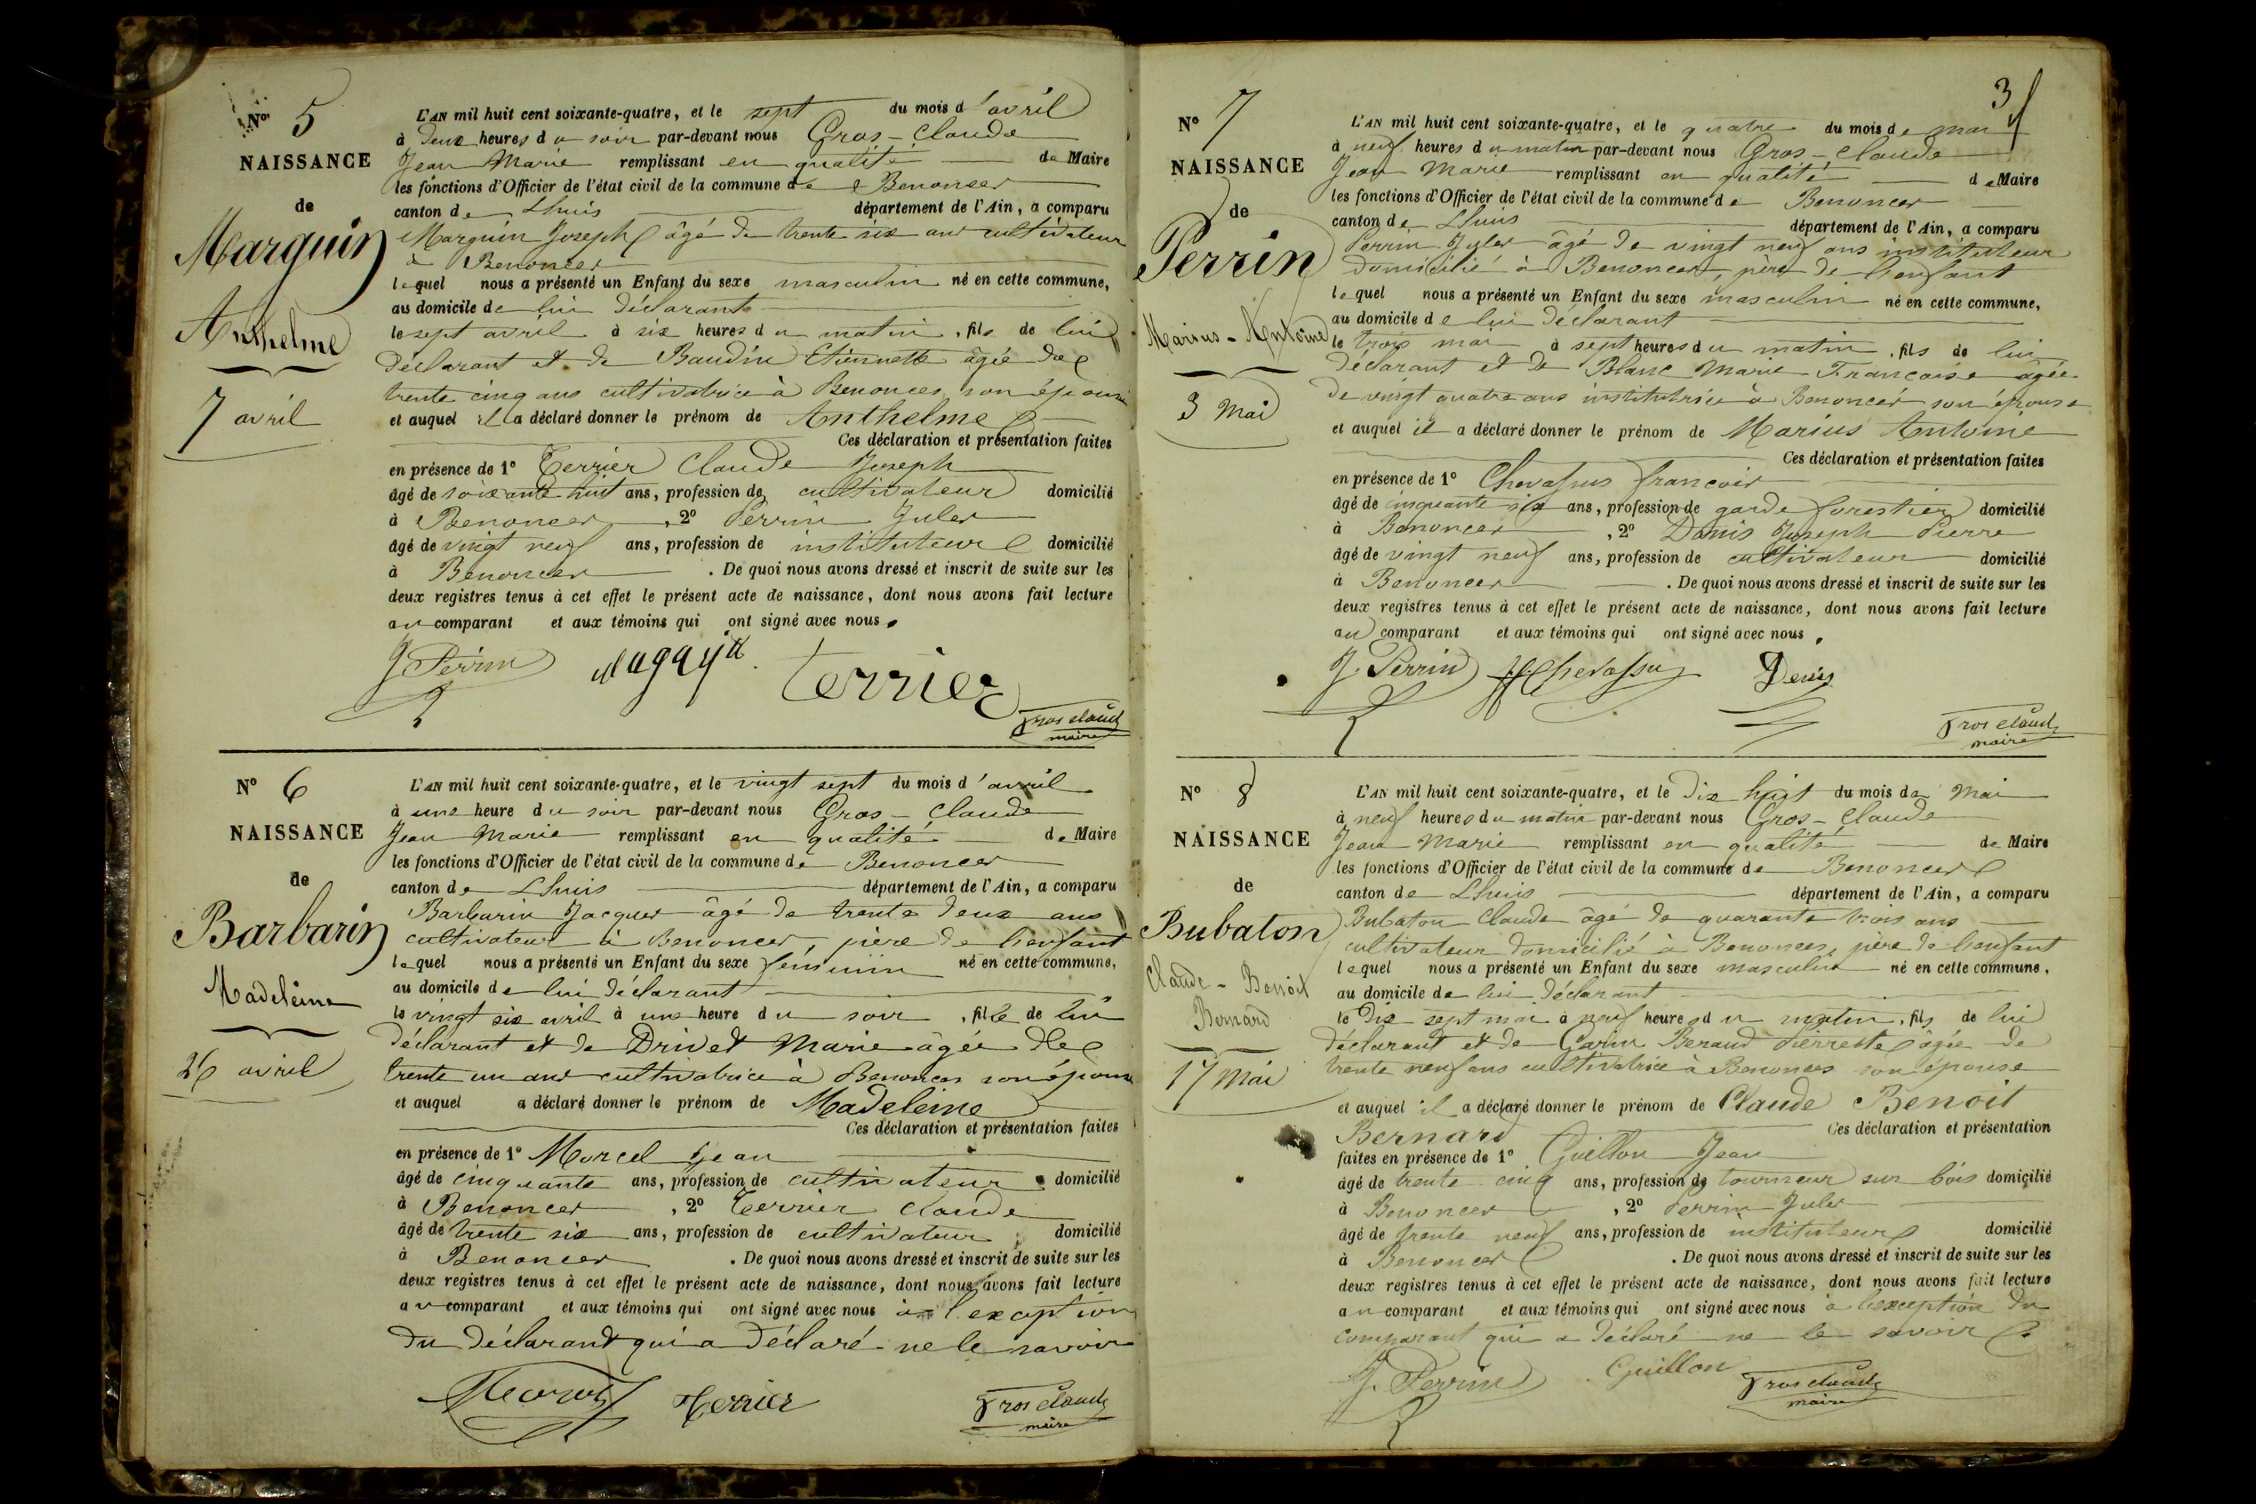 Nº 5
NAISSANCE
de
Marquin
Anthelme
7 avril
L'AN mil huit cent soixante-quatre, et le sept du mois d'avril
à deux heures du soir par-devant nous Gros-Claude
Jean Marie remplissant en qualité de Maire
les fonctions d'Officier de l'état civil de la commune de Benonces
canton de Lhuis département de l'Ain, a comparu
Marquin Joseph âgé de trente six ans cultivateur
à Benonces
lequel nous a présenté un Enfant du sexe masculin né en cette commune,
au domicile de lui déclarant
le sept avril à six heures du matin, fils de lui
déclarant et de Baudin Etiennette âgée de
trente cinq ans cultivatrice à Benonces son épouse
et auquel il a déclaré donner le prénom de Anthelme
Ces déclaration et présentation faites
en présence de 1º Terrier Claude Joseph
âgé de soixante huit ans, profession de cultivateur domicilié
à Benonces, 2º Perrin Jules
âgé de vingt neuf ans, profession de instituteur domicilié
à Benonces. De quoi nous avons dressé et inscrit de suite sur les
deux registres tenus à cet effet le présent acte de naissance, dont nous avons fait lecture
au comparant et aux témoins qui ont signé avec nous.
J. Perrin terrier
Gros claude
maire
Nº 6
NAISSANCE
de
Barbarin
Madeleine
26 avril
L'AN mil huit cent soixante-quatre, et le vingt sept du mois d'avril
à une heure du soir par-devant nous Gros-Claude
Jean Marie remplissant en qualité de Maire
les fonctions d'Officier de l'état civil de la commune de Benonces
canton de Lhuis département de l'Ain, a comparu
Barbarin Jacques âgé de trente deux ans
cultivateur à Benonces, père de l'enfant
lequel nous a présenté un Enfant du sexe féminin né en cette commune,
au domicile de lui déclarant
le vingt six avril à une heure du soir, fille de lui
déclarant et de Drivet Marie âgée de
trente un ans cultivatrice à Benonces son épouse
et auquel a déclaré donner le prénom de Madeleine
Ces déclaration et présentation faites
en présence de 1º Morcel Jean
âgé de cinquante ans, profession de cultivateur domicilié
à Benonces, 2º Terrier Claude
âgé de trente six ans, profession de cultivateur domicilié
à Benonces. De quoi nous avons dressé et inscrit de suite sur les
deux registres tenus à cet effet le présent acte de naissance, dont nous avons fait lecture
au comparant et aux témoins qui ont signé avec nous à l'exception
du déclarant qui a déclaré ne le savoir
Terrier
Gros claude
maire
3
Nº 7
NAISSANCE
de
Perrin
Marius-Antoine
3 Mai
L'AN mil huit cent soixante-quatre, et le quatre du mois de mai
à neuf heures du matin par-devant nous Gros-Claude
Jean Marie remplissant en qualité de Maire
les fonctions d'Officier de l'état civil de la commune de Benonces
canton de Lhuis département de l'Ain, a comparu
Perrin Jules âgé de vingt neuf ans instituteur
domicilié à Benonces, père de l'enfant
lequel nous a présenté un Enfant du sexe masculin né en cette commune,
au domicile de lui déclarant
le trois mai à sept heures du matin, fils de lui
déclarant et de Blanc Marie Françoise âgée
de vingt quatre ans institutrice à Benonces son épouse
et auquel il a déclaré donner le prénom de Marius Antoine
Ces déclaration et présentation faites
en présence de 1º Chevassus françois
âgé de cinquante six ans, profession de garde forestier domicilié
à Benonces, 2º Denis Joseph Pierre
âgé de vingt neuf ans, profession de cultivateur domicilié
à Benonces. De quoi nous avons dressé et inscrit de suite sur les
deux registres tenus à cet effet le présent acte de naissance, dont nous avons fait lecture
au comparant et aux témoins qui ont signé avec nous.
J. Perrin Chevassus Denis
Gros claude
maire
Nº 8
NAISSANCE
de
Bubaton
Claude-Benoit
Bernard
17 Mai
L'AN mil huit cent soixante-quatre, et le dix huit du mois de Mai
à neuf heures du matin par-devant nous Gros-Claude
Jean Marie remplissant en qualité de Maire
les fonctions d'Officier de l'état civil de la commune de Benonces
canton de Lhuis département de l'Ain, a comparu
Bubaton Claude âgé de quarante trois ans
cultivateur domicilié à Benonces, père de l'enfant
lequel nous a présenté un Enfant du sexe masculin né en cette commune,
au domicile de lui déclarant
le dix sept mai à neuf heures du matin, fils de lui
déclarant et de Garin Beraud Pierrette âgée de
trente neuf ans cultivatrice à Benonces son épouse
et auquel il a déclaré donner le prénom de Claude Benoit
Bernard Ces déclaration et présentation
faites en présence de 1º Guillon Jean
âgé de trente cinq ans, profession de tourneur sur bois domicilié
à Benonces, 2º Perrin Jules
âgé de trente neuf ans, profession de instituteur domicilié
à Benonces. De quoi nous avons dressé et inscrit de suite sur les
deux registres tenus à cet effet le présent acte de naissance, dont nous avons fait lecture
au comparant et aux témoins qui ont signé avec nous à l'exception du
comparant qui a déclaré ne le savoir
J. Perrin Guillon Gros claude
maire